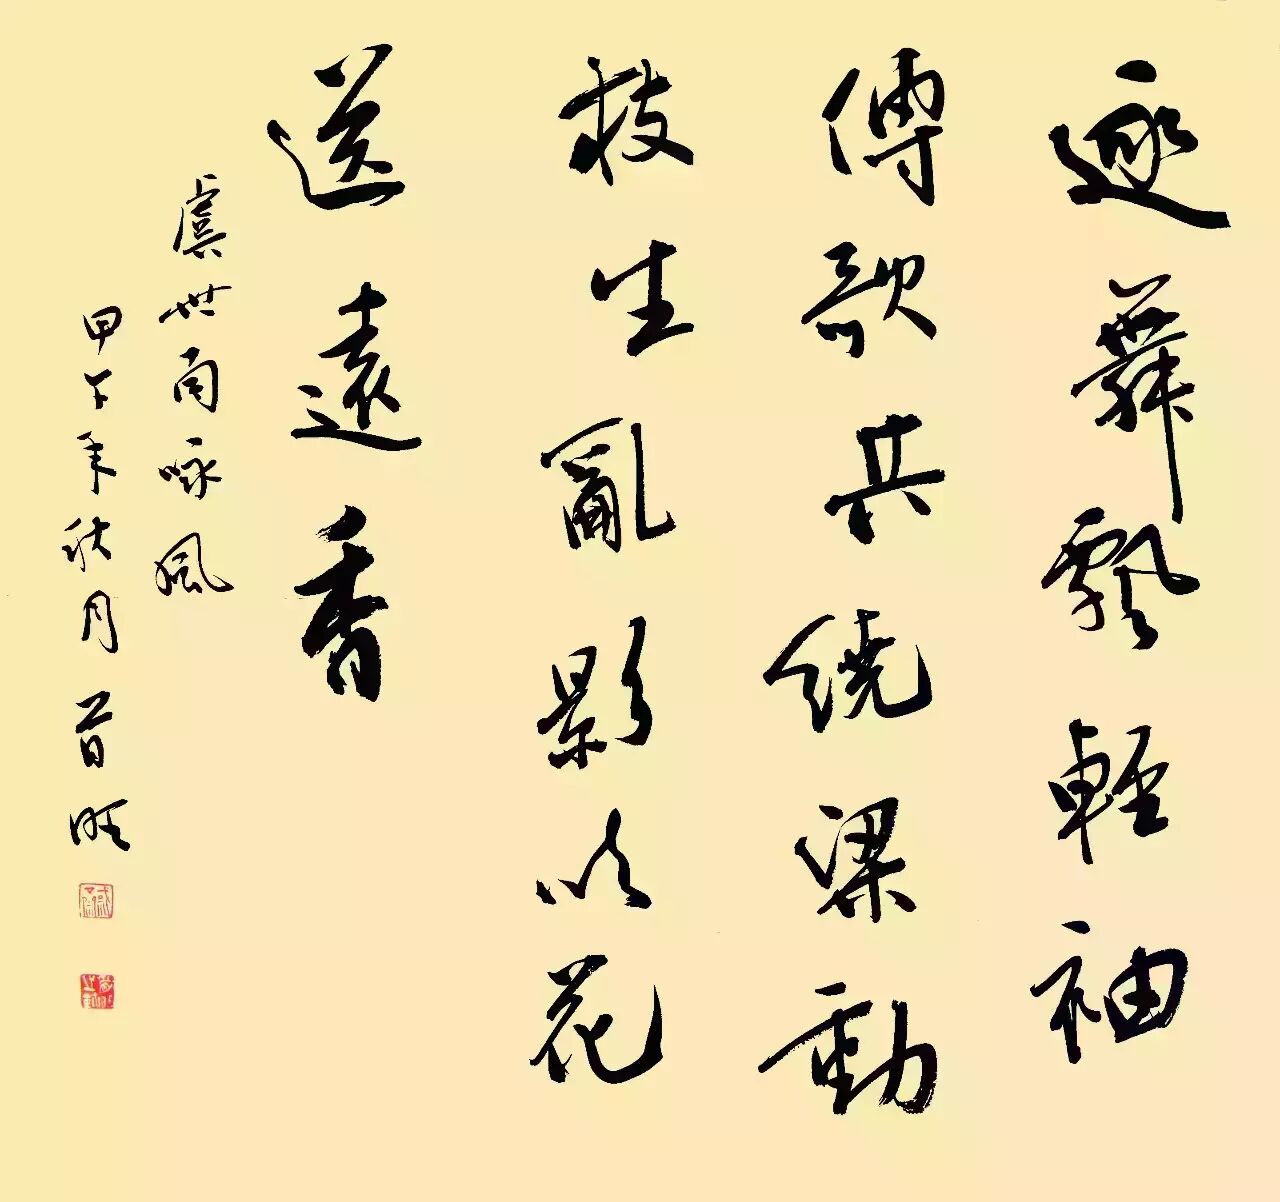 逐舞飄輕袖
傳歌共繞梁動
枝生亂影吹花
送遠香
虞世南咏風
甲午年秋月